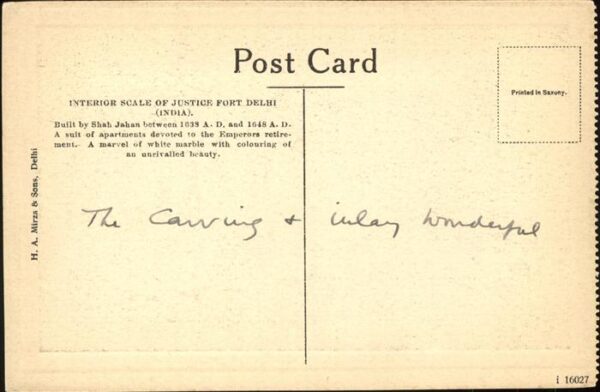 Post Card
INTERIOR SCALE OF JUSTICE FORT DELHI
(INDIA).
Built by Shah Jahan between 1638 A. D. and 1648 A. D.
A suit of apartments devoted to the Emperors retire-
ment. A marvel of white marble with colouring of
an unrivalled beauty.
Printed in Saxony.
H. A. Mirza & Sons, Delhi
The Carving + inlay wonderful
i 16027